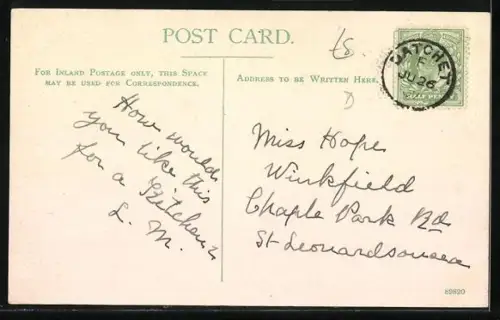 POST CARD.
£5
FOR INLAND POSTAGE ONLY, THIS SPACE
MAY BE USED FOR CORRESPONDENCE.
ADDRESS TO BE WRITTEN HERE.
D
DATCHET
E
JU 26
How would
you like this
for a Kitchen?
L. M.
Miss Hope
Winkfield
Chaple Park Rd
St Leonardsonsea
69820